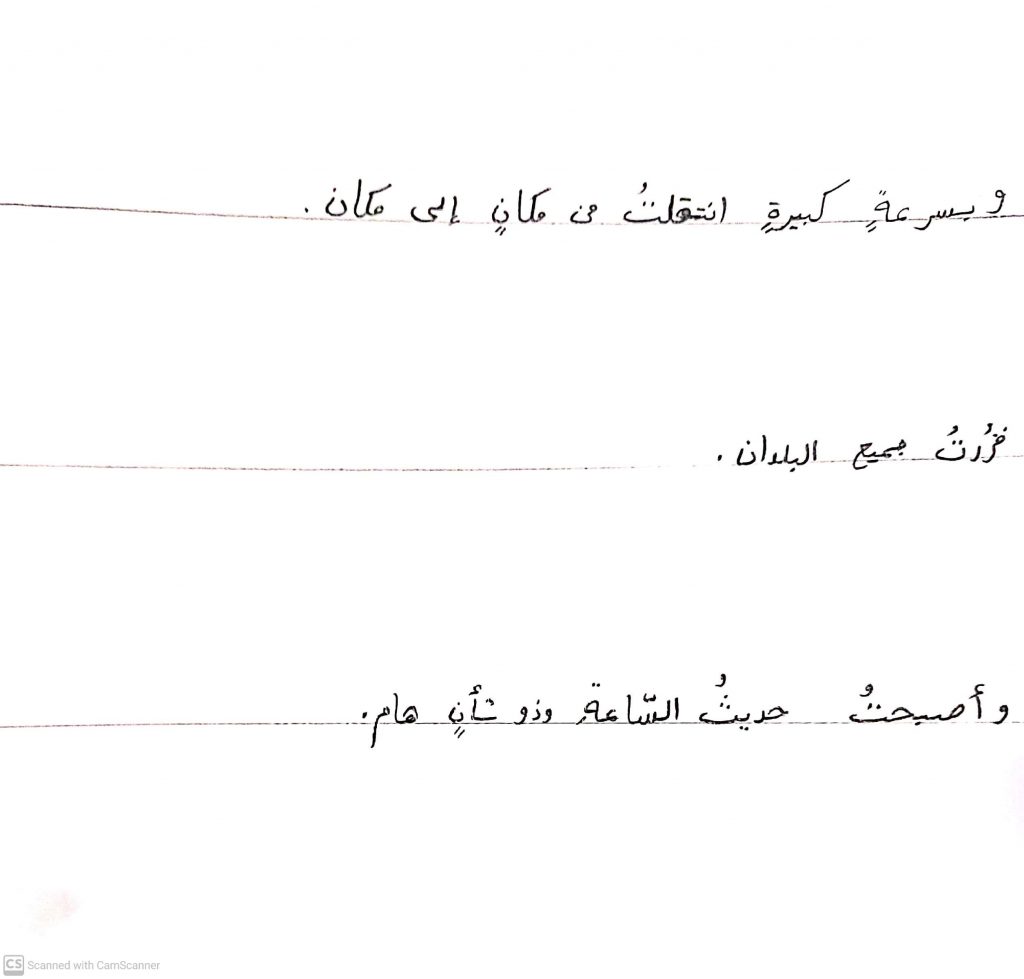 و بسرعةٍ كبيرةٍ انتقلتُ من مكانٍ إلى مكان .
فزُرتُ جميع البلدان .
و أصبحتُ حديثُ السّاعةِ وذو شأنٍ هام.
CS Scanned with CamScanner